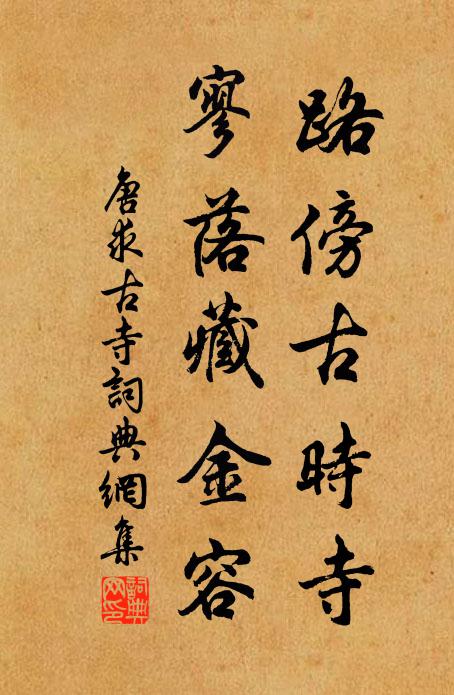 路傍古時寺
寥落藏金容
唐求古寺詞典網集
詞典网印